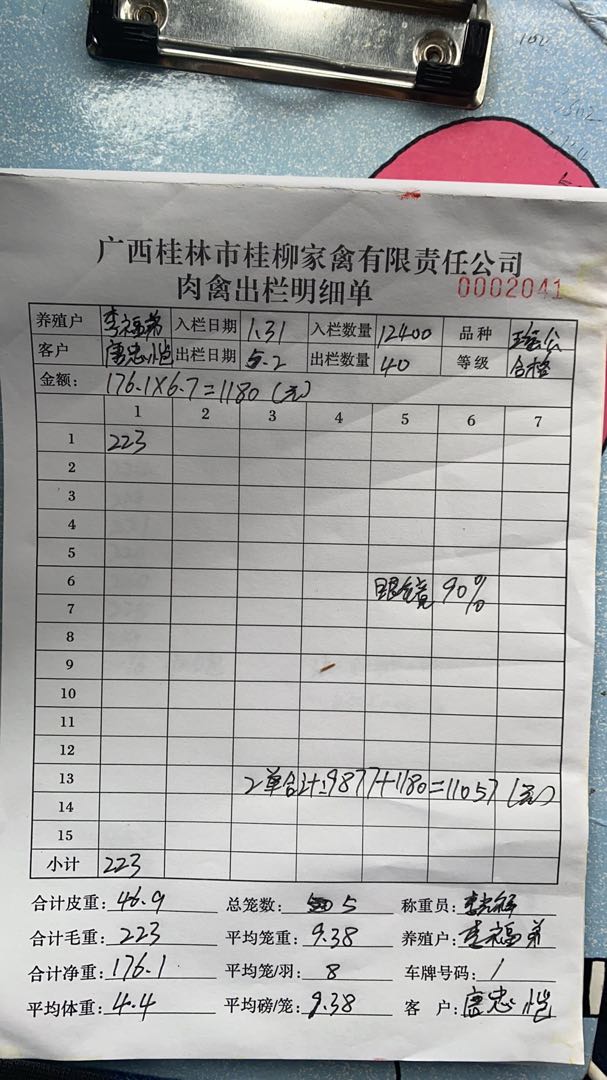 广西桂林市桂柳家禽有限责任公司
肉禽出栏明细单 0002041
养殖户 李福弟 入栏日期 1.31 入栏数量 12400 品种 瑶公
客户 唐忠恺 出栏日期 5.2 出栏数量 40 等级 合格
金额: 176.1×6.7=1180(元)
1 2 3 4 5 6 7
1 223
2
3
4
5
6 眼镜 90%
7
8
9
10
11
12
13 2单合计:9877+1180=11057(元)
14
15
小计 223
合计皮重: 46.9 总笼数: 5 称重员:
合计毛重: 223 平均笼重: 9.38 养殖户: 李福弟
合计净重: 176.1 平均笼/羽: 8 车牌号码: /
平均体重: 4.4 平均磅/笼: 9.38 客户: 唐忠恺